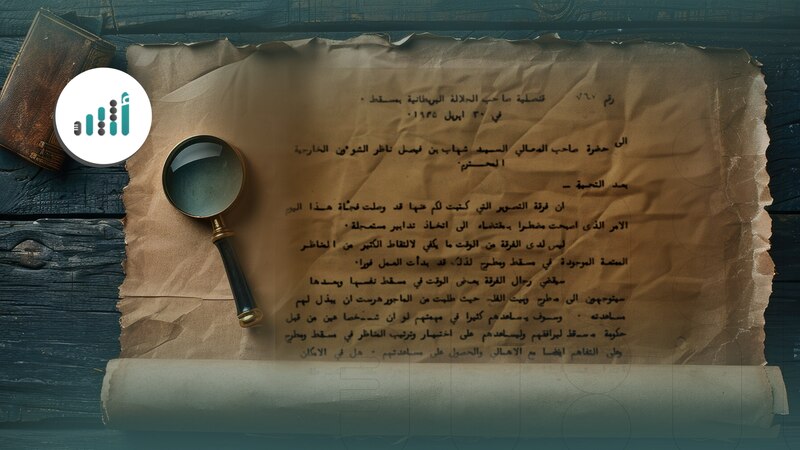 رقم ٧٦٧ قنصلية صاحب الجلالة البريطانية بمسقط ٠
في ٣٠ ابريل ١٩٣٥٠
الى
حضرة صاحب المعالي السيد شهاب بن فيصل ناظر الشوءون الخارجية
المحترم٠
بعد التحية ــ
ان فرقة التصوير التي كتبت لكم عنها قد وصلت فجأة هذا اليوم
الامر الذى اصبحت مضطرا بمقتضاه الى اتخاذ تدابير مستعجلة ٠
ليس لدى الفرقة من الوقت ما يكفي لالتقاط الكثير من المناظر
الممتعة الموجودة في مسقط ومطرح لذلك قد بدأت العمل فورا٠
سيقضي رجال الفرقة بعض الوقت في مسقط نفسها وبعدها
سيتوجهون الى مطرح وبيت الفلج حيث طلبت من الماجور هرست ان يبذل لهم
مساعدته ٠ وسوف يساعدهم كثيرا في مهمتهم لو ان شخصا عين من قبل
حكومة مسقط ليرافقهم وليساعدهم على اختيار وترتيب المناظر في مسقط ومطرح
وعلى التفاهم ايضا مع الاهالي والحصول على مساعدتهم ٠ هل في الامكان